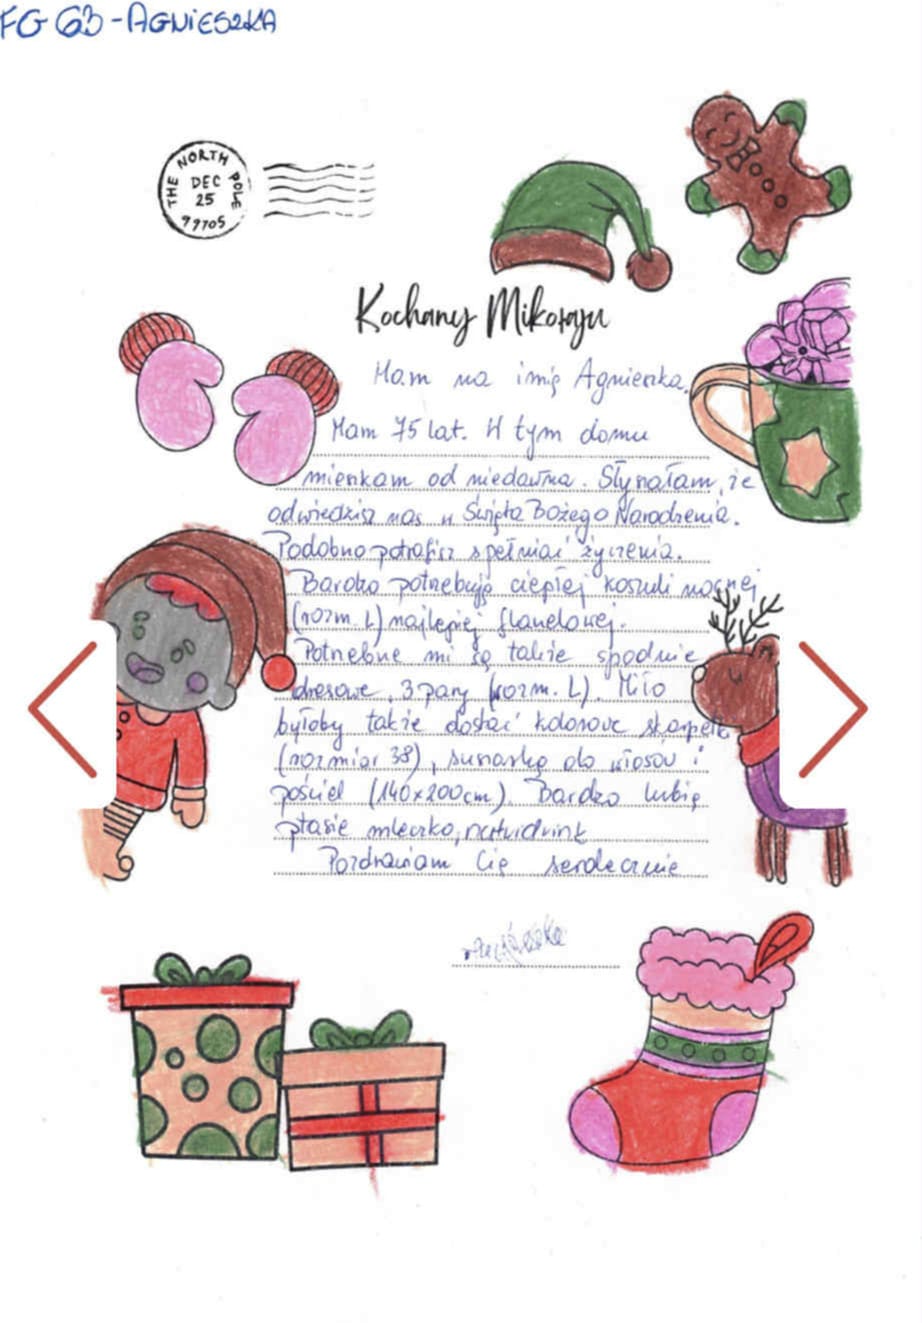 FG 63 - AGNIESZKA
THE NORTH POLE
DEC
25
99705
Kochany Mikołaju
Mam na imię Agnieszka.
Mam 75 lat. W tym domu
mieszkam od niedawna. Słyszałam, że
odwiedzisz nas w Święta Bożego Narodzenia.
Podobno potrafisz spełniać życzenia.
Bardzo potrzebuję ciepłej koszuli nocnej
(rozm. L) najlepiej flanelowej.
Potrzebne mi są także spodnie
dresowe, 3 pary (rozm. L). Miło
byłoby także dostać kolorowe skarpetk
(rozmiar 38), suszarkę do włosów i
pościel (140x200cm). Bardzo lubię
ptasie mleczko, nutridrink
Pozdrawiam Cię serdecznie
Agnieszka